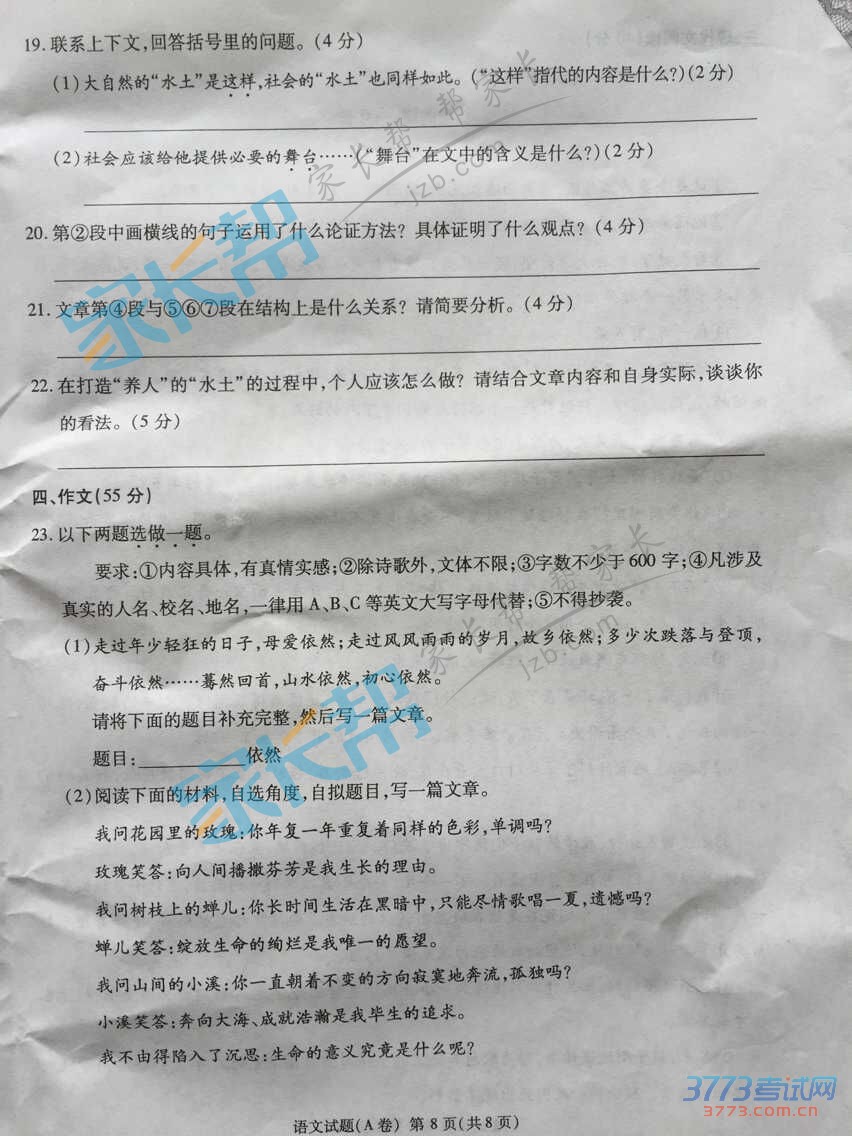 19.联系上下文,回答括号里的问题。(4分)
(1)大自然的“水土”是这样,社会的“水土”也同样如此。(“这样”指代的内容是什么?)(2分)
(2)社会应该给他提供必要的舞台……(“舞台”在文中的含义是什么?)(2分)
20.第②段中画横线的句子运用了什么论证方法?具体证明了什么观点?(4分)
21.文章第④段与⑤⑥⑦段在结构上是什么关系?请简要分析。(4分)
22.在打造“养人”的“水土”的过程中,个人应该怎么做?请结合文章内容和自身实际,谈谈你
的看法。(5分)
四、作文(55分)
23.以下两题选做一题。
要求:①内容具体,有真情实感;②除诗歌外,文体不限;③字数不少于600字;④凡涉及
真实的人名、校名、地名,一律用A、B、C等英文大写字母代替;⑤不得抄袭。
(1)走过年少轻狂的日子,母爱依然;走过风风雨雨的岁月,故乡依然;多少次跌落与登顶,
奋斗依然……蓦然回首,山水依然,初心依然。
请将下面的题目补充完整,然后写一篇文章。
题目:__________依然
(2)阅读下面的材料,自选角度,自拟题目,写一篇文章。
我问花园里的玫瑰:你年复一年重复着同样的色彩,单调吗?
玫瑰笑答:向人间播撒芬芳是我生长的理由。
我问树枝上的蝉儿:你长时间生活在黑暗中,只能尽情歌唱一夏,遗憾吗?
蝉儿笑答:绽放生命的绚烂是我唯一的愿望。
我问山间的小溪:你一直朝着不变的方向寂寞地奔流,孤独吗?
小溪笑答:奔向大海、成就浩瀚是我毕生的追求。
我不由得陷入了沉思:生命的意义究竟是什么呢?
语文试题(A卷) 第8页(共8页)
家长帮
家长帮 帮家长
jzb.com
家长帮
家长帮 帮家长
jzb.com
3773考试网
www.3773.com.cn